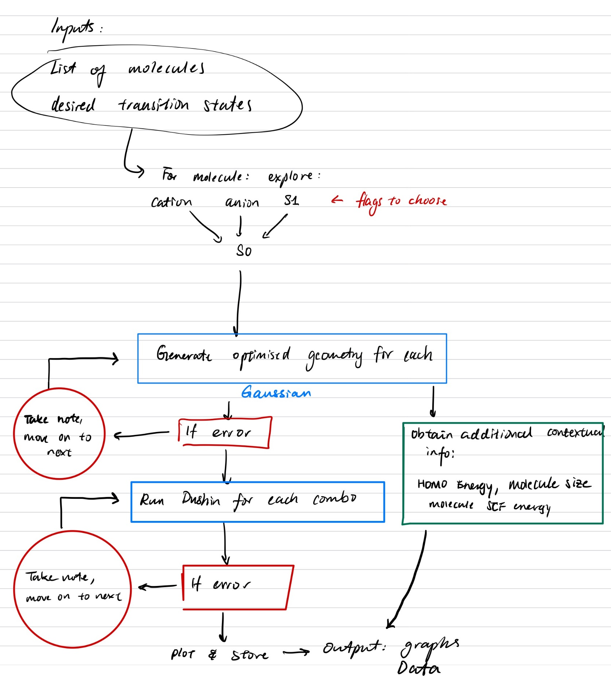 Inputs:
List of molecules
desired transition states
For molecule: explore:
cation anion S1 ← flags to choose
S0
Generate optimised geometry for each
Gaussian
If error
Take note,
move on to
next
obtain additional contextual
info:
HOMO Energy, molecule size
molecule SCF energy
Run Dushin for each combo
If error
Take note,
move on to next
Plot & Store → Output: graphs
Data